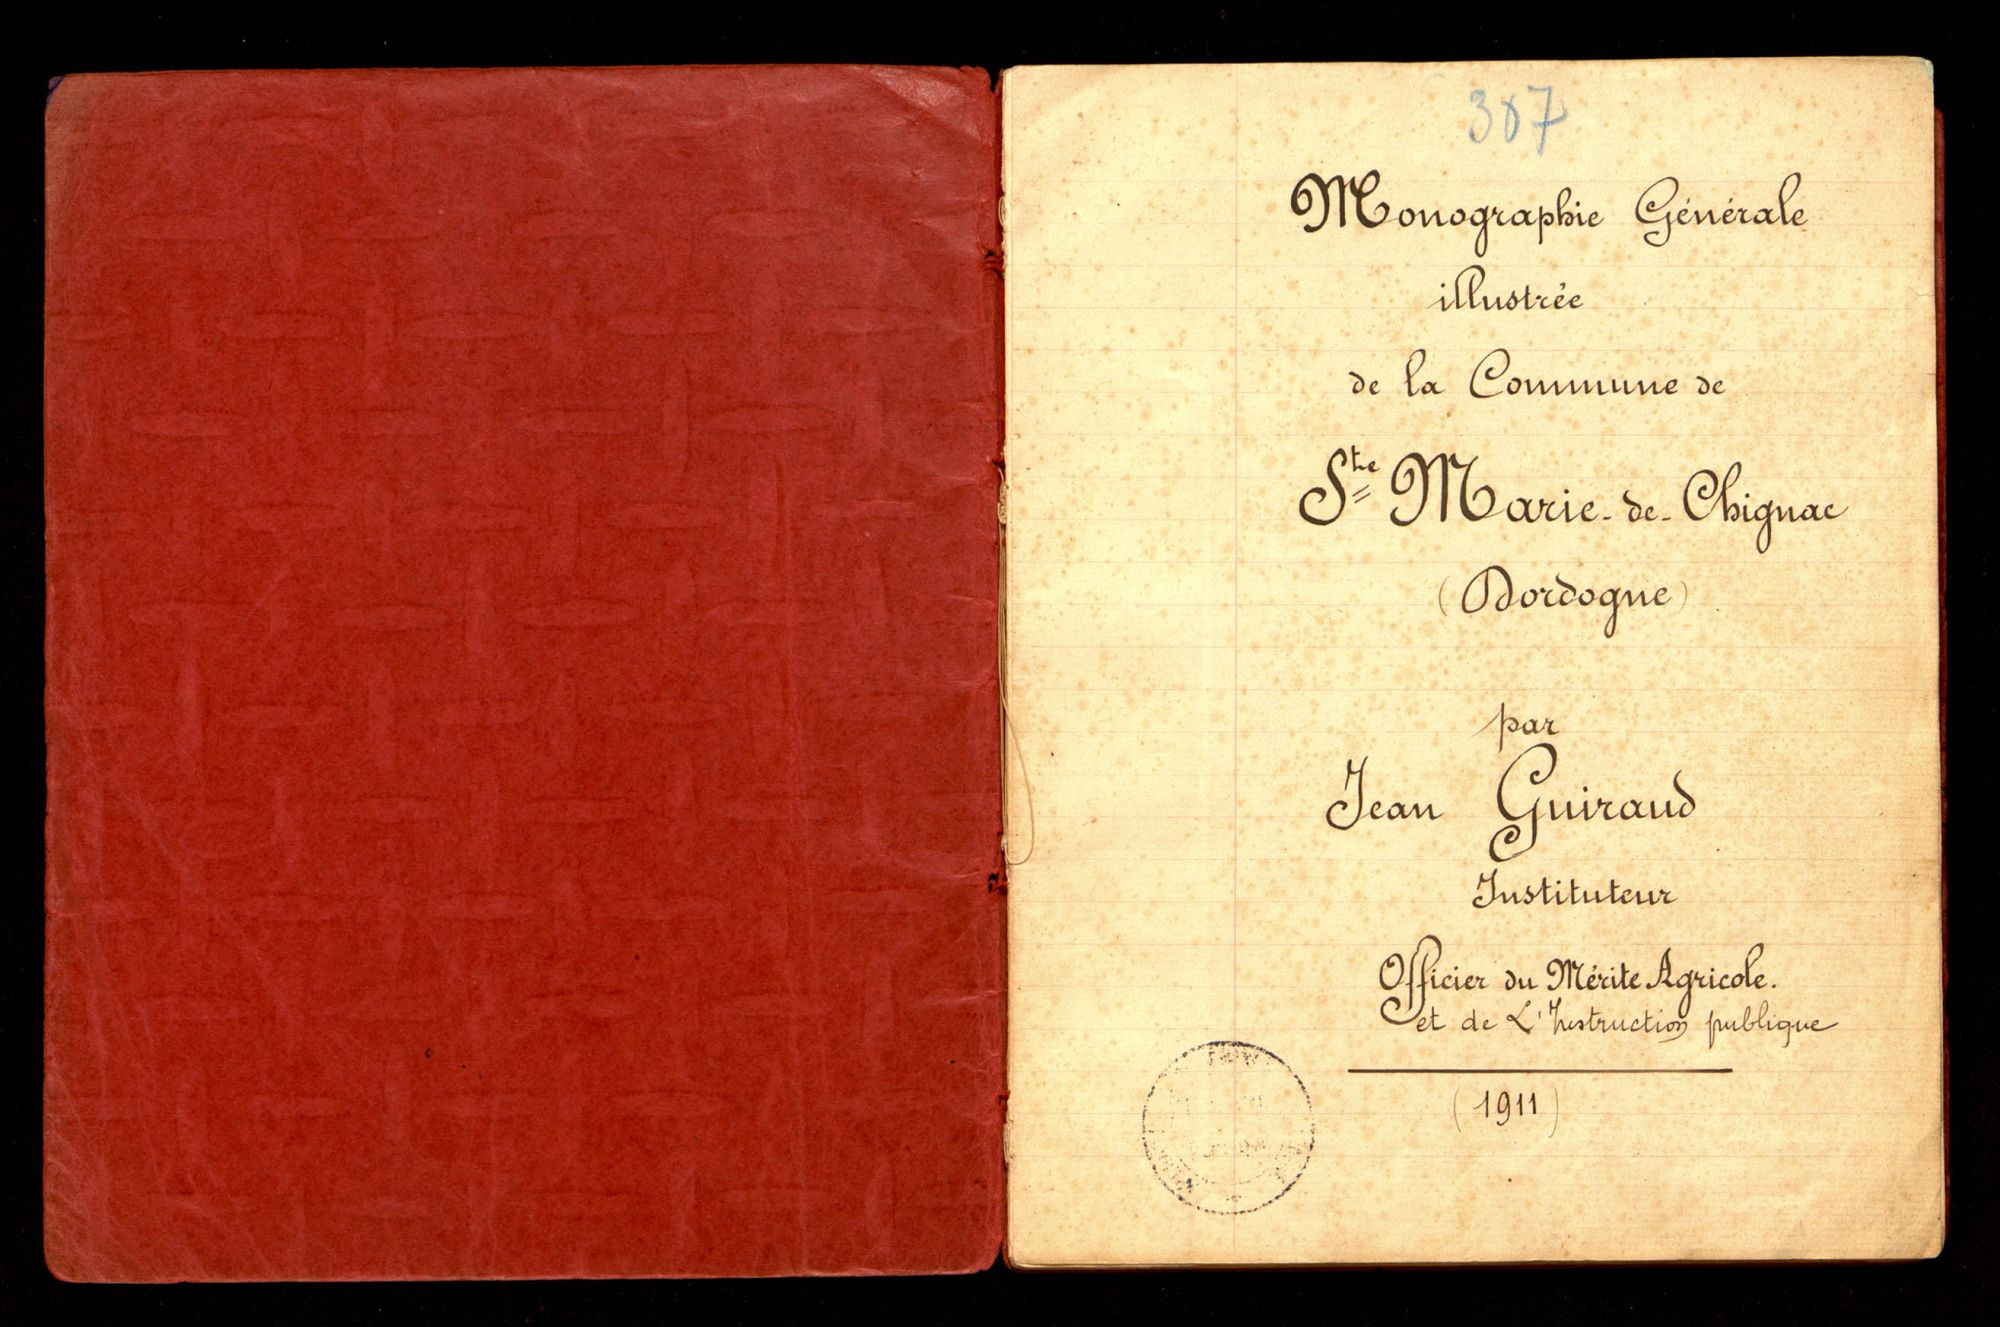 307
Monographie Générale
illustrée
de la Commune de
Ste Marie-de-Chignac
(Dordogne)
par
Jean Guiraud
Instituteur
Officier du Mérite Agricole.
et de L'Instruction publique
(1911)